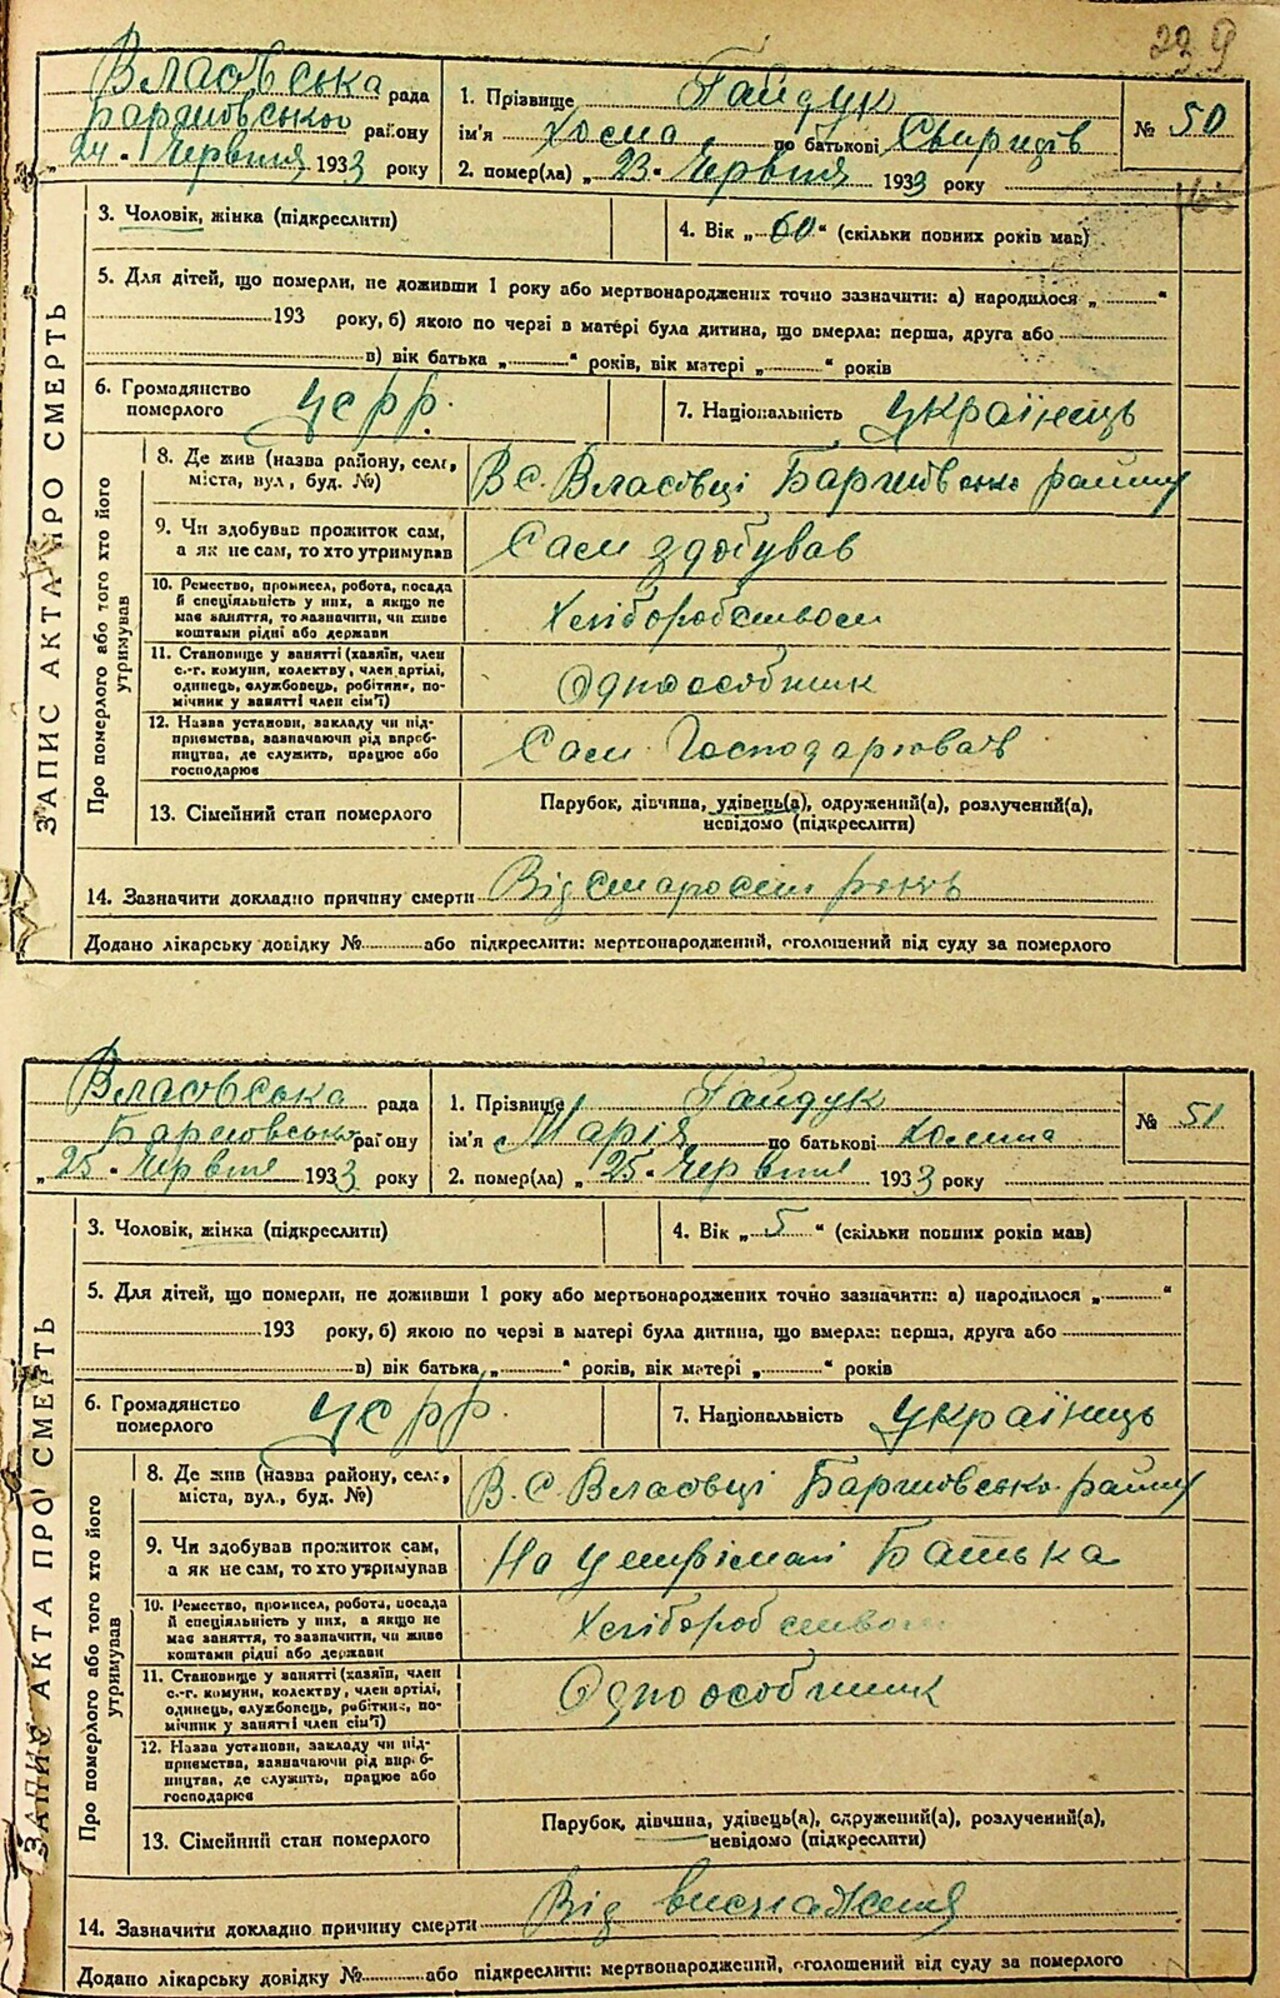 239
Власівська рада
Баришівського району
„24" Червня 1933 року
1. Прізвище Гайдук
ім'я Хома по батькові Свиридів
2. помер(ла) „23" Червня 1933 року
№ 50
3. Чоловік, жінка (підкреслити)
4. Вік „60" (скільки повних років мав)
5. Для дітей, що померли, не доживши 1 року або мертвонароджених точно зазначити: а) народилося „ "
193 року, б) якою по черзі в матері була дитина, що вмерла: перша, друга або
в) вік батька „ " років, вік матері „ " років
6. Громадянство
померлого
УСРР.
7. Національність Українець
ЗАПИС АКТА ПРО СМЕРТЬ
Про померлого або того хто його
утримував
8. Де жив (назва району, село,
міста, вул, буд. №)
В с. Власівці Баришівсько району
9. Чи здобував прожиток сам,
а як не сам, то хто утримував
Сам здобував
10. Ремество, промисел, робота, посада
й спеціяльність у них, а якщо не
має заняття, то зазначити, чи живе
коштами рідні або держави
Хліборобством
11. Становище у занятті (хазяїн, член
с.-г. комуни, колектву, член артілі,
одинець, службовець, робітник, по-
мічник у занятті член сім'ї)
Одноособник
12. Назва установи, закладу чи під-
приємства, зазначаючи рід вироб-
ництва, де служить, працює або
господарює
Сам Господарював
13. Сімейний стан померлого
Парубок, дівчина, удівець(а), одружений(а), розлучений(а),
невідомо (підкреслити)
14. Зазначити докладно причину смерти Від старости років
Додано лікарську довідку № або підкреслити: мертвонароджений, оголошений від суду за померлого
Власівська рада
Баришівсько району
„25" Червня 1933 року
1. Прізвище Гайдук
ім'я Марія по батькові Хомина
2. помер(ла) „25" Червня 1933 року
№ 51
3. Чоловік, жінка (підкреслити)
4. Вік „5" (скільки повних років мав)
5. Для дітей, що померли, не доживши 1 року або мертвонароджених точно зазначити: а) народилося „ "
193 року, б) якою по черзі в матері була дитина, що вмерла: перша, друга або
в) вік батька „ " років, вік матері „ " років
6. Громадянство
померлого
УСРР.
7. Національність Українець
ЗАПИС АКТА ПРО СМЕРТЬ
Про померлого або того хто його
утримував
8. Де жив (назва району, село,
міста, вул., буд. №)
В. С. Власовці Баришівсько району
9. Чи здобував прожиток сам,
а як не сам, то хто утримував
На утрімані Батька
10. Ремество, промисел, робота, посада
й спеціяльність у них, а якщо не
має заняття, то зазначити, чи живе
коштами рідні або держави
Хліборобством
11. Становище у занятті (хазяїн, член
с.-г. комуни, колектву, член артілі,
одинець, службовець, робітник, по-
мічник у занятті член сім'ї)
Одноособник
12. Назва установи, закладу чи під-
приємства, зазначаючи рід вироб-
ництва, де служить, працює або
господарює
13. Сімейний стан померлого
Парубок, дівчина, удівець(а), одружений(а), розлучений(а),
невідомо (підкреслити)
14. Зазначити докладно причину смерти Від виснаженя
Додано лікарську довідку № або підкреслити: мертвонароджений, оголошений від суду за померлого